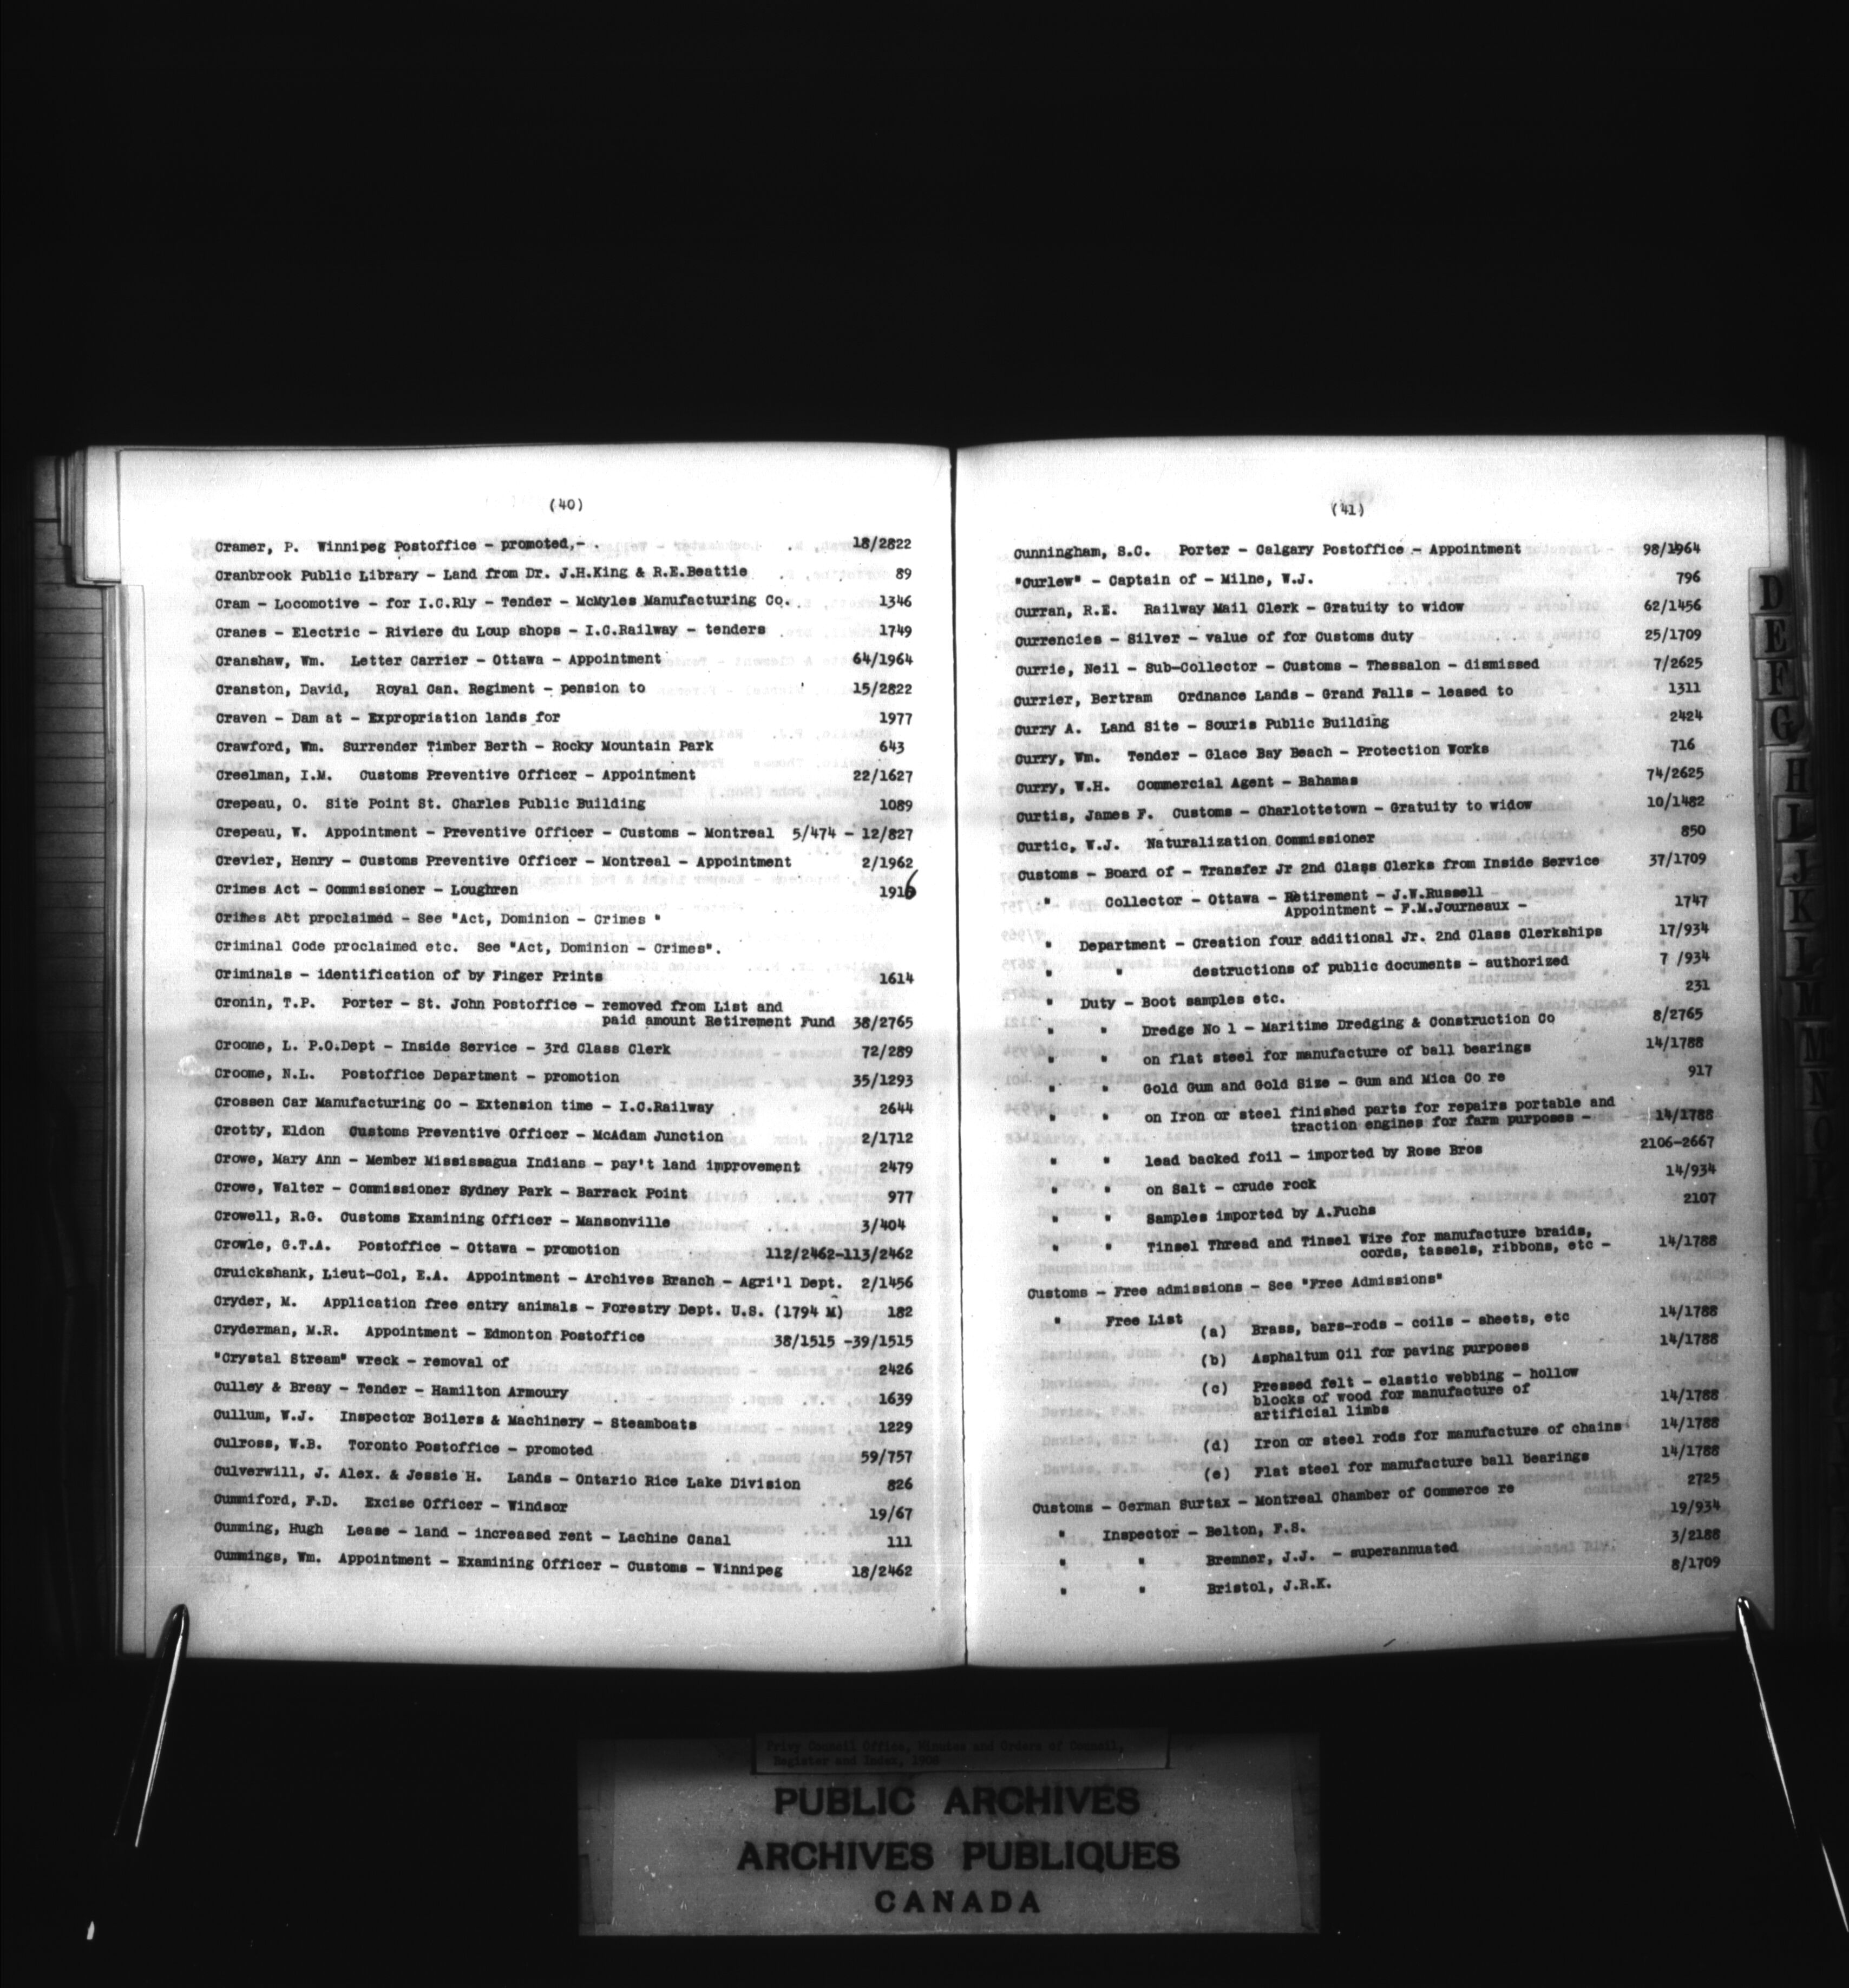 (40)
Cramer, P. Winnipeg Postoffice - promoted,- . 18/2822
Cranbrook Public Library - Land from Dr. J.H.King & R.E.Beattie 89
Cram - Locomotive - for I.C.Rly - Tender - McMyles Manufacturing Co. 1346
Cranes - Electric - Riviere du Loup shops - I.C.Railway - tenders 1749
Cranshaw, Wm. Letter Carrier - Ottawa - Appointment 64/1964
Cranston, David, Royal Can. Regiment - pension to 15/2822
Craven - Dam at - Expropriation lands for 1977
Crawford, Wm. Surrender Timber Berth - Rocky Mountain Park 643
Creelman, I.M. Customs Preventive Officer - Appointment 22/1627
Crepeau, O. Site Point St. Charles Public Building 1089
Crepeau, W. Appointment - Preventive Officer - Customs - Montreal 5/474 - 12/827
Crevier, Henry - Customs Preventive Officer - Montreal - Appointment 2/1962
Crimes Act - Commissioner - Loughren 1916
Crimes Act proclaimed - See "Act, Dominion - Crimes "
Criminal Code proclaimed etc. See "Act, Dominion - Crimes".
Criminals - identification of by Finger Prints 1614
Cronin, T.P. Porter - St. John Postoffice - removed from List and
paid amount Retirement Fund 38/2765
Croome, L. P.O.Dept - Inside Service - 3rd Class Clerk 72/289
Croome, N.L. Postoffice Department - promotion 35/1293
Crossen Car Manufacturing Co - Extension time - I.C.Railway 2644
Crotty, Eldon Customs Preventive Officer - McAdam Junction 2/1712
Crowe, Mary Ann - Member Mississagua Indians - pay't land improvement 2479
Crowe, Walter - Commissioner Sydney Park - Barrack Point 977
Crowell, R.G. Customs Examining Officer - Mansonville 3/404
Crowle, G.T.A. Postoffice - Ottawa - promotion 112/2462-113/2462
Cruickshank, Lieut-Col, E.A. Appointment - Archives Branch - Agri'l Dept. 2/1456
Cryder, M. Application free entry animals - Forestry Dept. U.S. (1794 M) 182
Cryderman, M.R. Appointment - Edmonton Postoffice 38/1515 -39/1515
"Crystal Stream" wreck - removal of 2426
Culley & Breay - Tender - Hamilton Armoury 1639
Cullum, W.J. Inspector Boilers & Machinery - Steamboats 1229
Culross, W.B. Toronto Postoffice - promoted 59/757
Culverwill, J. Alex. & Jessie H. Lands - Ontario Rice Lake Division 826
Cummiford, F.D. Excise Officer - Windsor 19/67
Cumming, Hugh Lease - land - increased rent - Lachine Canal 111
Cummings, Wm. Appointment - Examining Officer - Customs - Winnipeg 18/2462
(41)
Cunningham, S.C. Porter - Calgary Postoffice - Appointment 98/1964
"Curlew" - Captain of - Milne, W.J. 796
Curran, R.E. Railway Mail Clerk - Gratuity to widow 62/1456
Currencies - Silver - value of for Customs duty 25/1709
Currie, Neil - Sub-Collector - Customs - Thessalon - dismissed 7/2625
Currier, Bertram Ordnance Lands - Grand Falls - leased to 1311
Curry A. Land Site - Souris Public Building 2424
Curry, Wm. Tender - Glace Bay Beach - Protection Works 716
Curry, W.H. Commercial Agent - Bahamas 74/2625
Curtis, James F. Customs - Charlottetown - Gratuity to widow 10/1482
Curtic, W.J. Naturalization Commissioner 850
Customs - Board of - Transfer Jr 2nd Class Clerks from Inside Service 37/1709
" Collector - Ottawa - Retirement - J.W.Russell
Appointment - F.M.Journeaux - 1747
" Department - Creation four additional Jr. 2nd Class Clerkships 17/934
" " destructions of public documents - authorized 7 /934
" Duty - Boot samples etc. 231
" " Dredge No 1 - Maritime Dredging & Construction Co 8/2765
" " on flat steel for manufacture of ball bearings 14/1788
" " Gold Gum and Gold Size - Gum and Mica Co re 917
" " on Iron or steel finished parts for repairs portable and
traction engines for farm purposes - 14/1788
" " lead backed foil - imported by Rose Bros 2106-2667
" " on Salt - crude rock 14/934
" " Samples imported by A.Fuchs 2107
" " Tinsel Thread and Tinsel Wire for manufacture braids,
cords, tassels, ribbons, etc - 14/1788
Customs - Free admissions - See "Free Admissions"
" Free List
(a) Brass, bars-rods - coils - sheets, etc 14/1788
(b) Asphaltum Oil for paving purposes 14/1788
(c) Pressed felt - elastic webbing - hollow
blocks of wood for manufacture of
artificial limbs 14/1788
(d) Iron or steel rods for manufacture of chains 14/1788
(e) Flat steel for manufacture ball bearings 14/1788
Customs - German Surtax - Montreal Chamber of Commerce re 2725
" Inspector - Belton, F.S. 19/934
" " Bremner, J.J. - superannuated 3/2188
" " Bristol, J.R.K. 8/1709
D
E
F
G
H
I
J
K
L
M
N
Privy Council Office, Minutes and Orders of Council,
Register and Index, 1908
PUBLIC ARCHIVES
ARCHIVES PUBLIQUES
CANADA